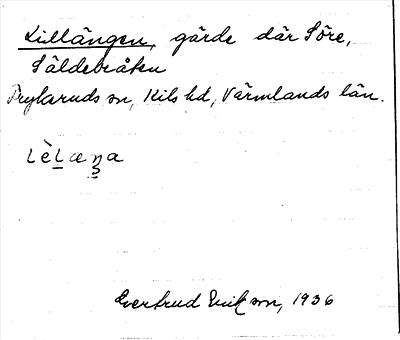 Lillängen, gärde där Söre,
Såldebråten
Frykeruds sn, Kils hd, Värmlands län.
Lèlæŋa
Gertrud Ericson, 1936